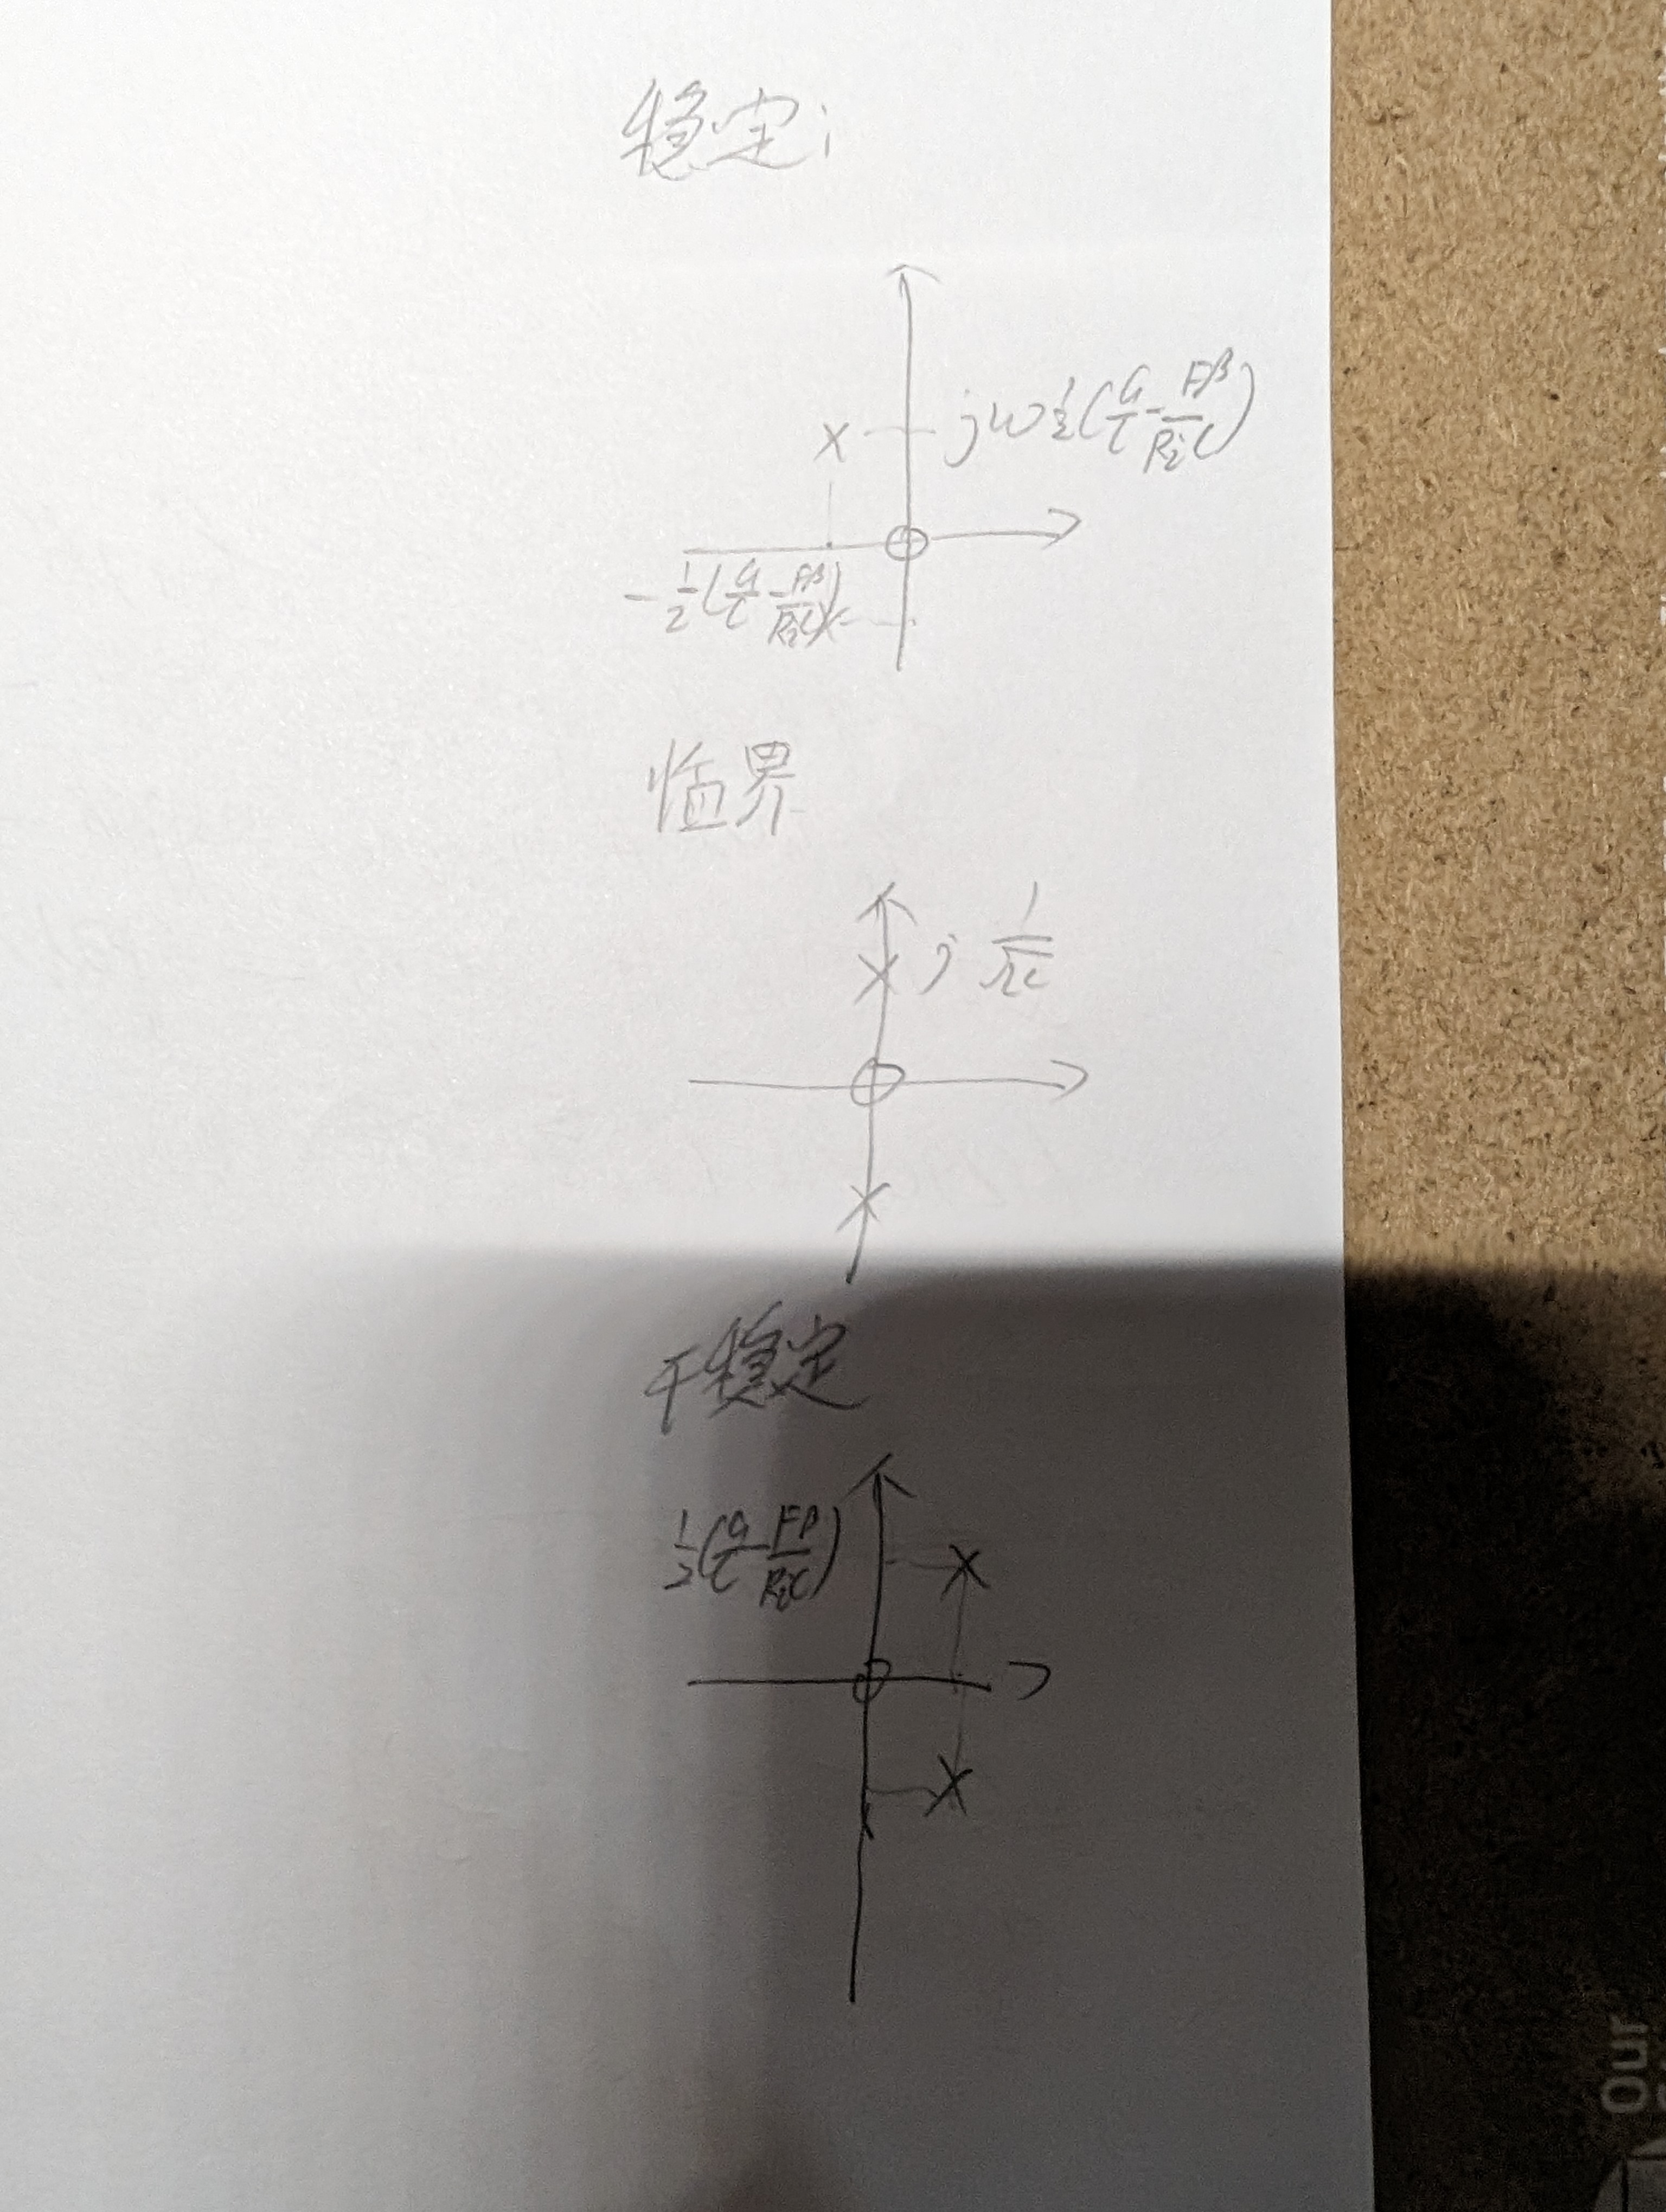 稳定:
jω½(G/C - Fβ/RiC)
-½(G/C - Fβ/RiC)
临界
j 1/√LC
不稳定
½(G/C - Fβ/RiC)
Our